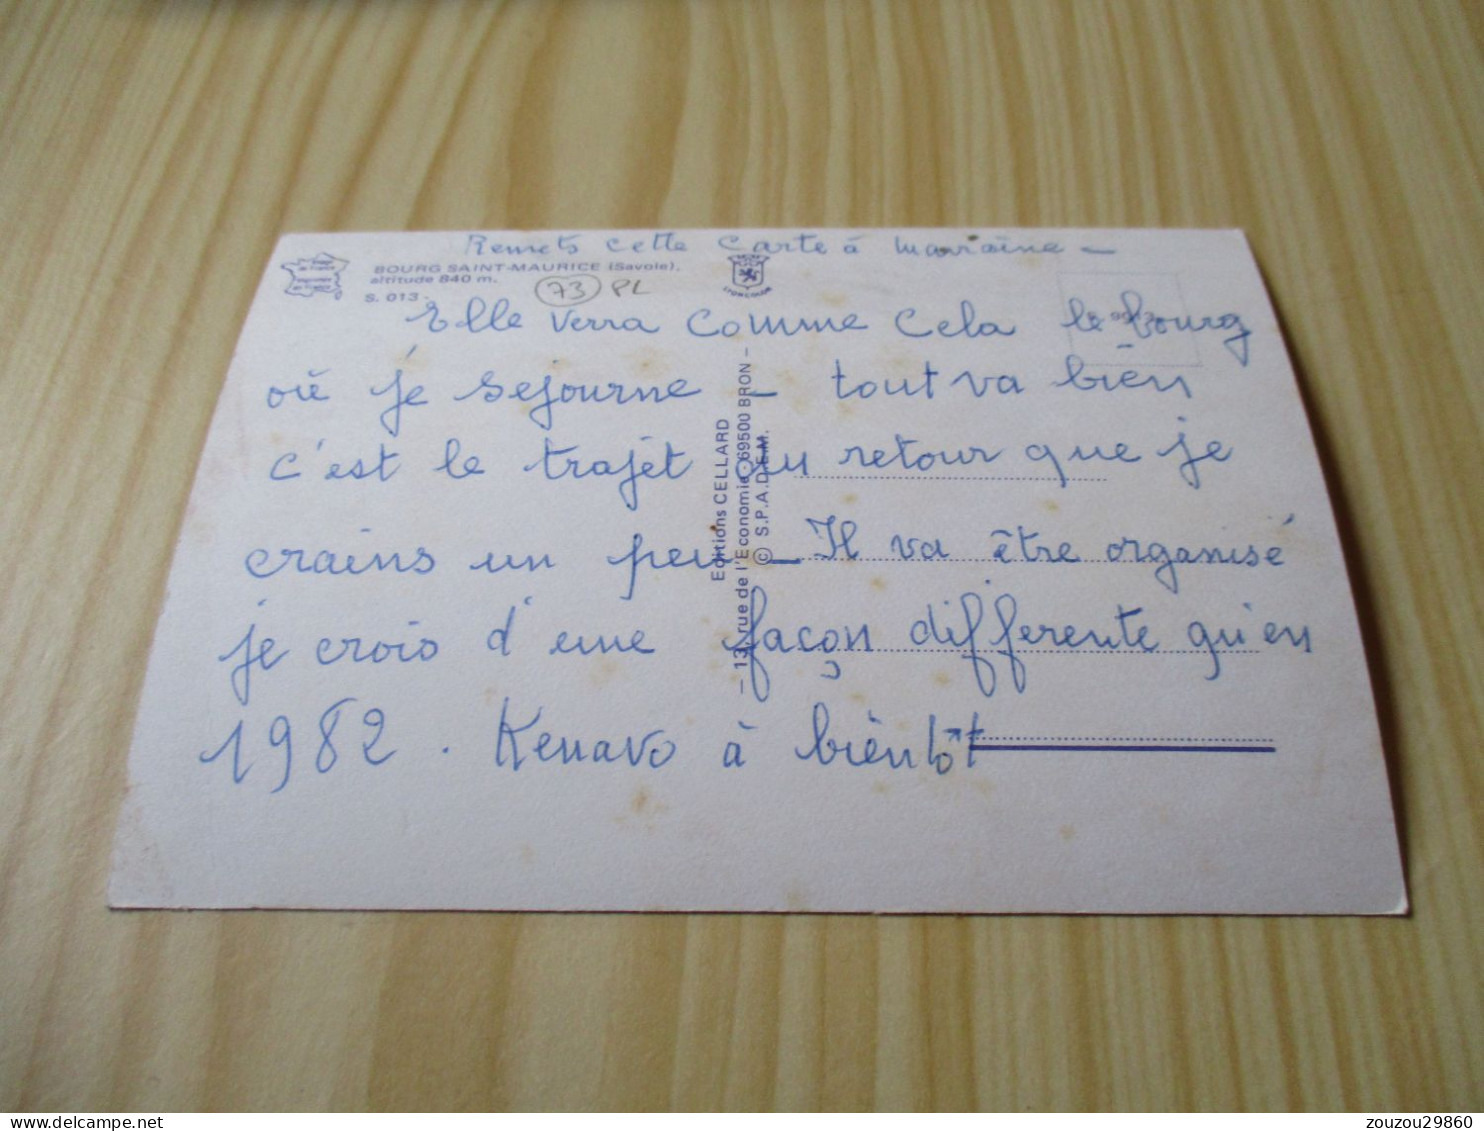 Remets cette carte à marraine -
BOURG SAINT-MAURICE (Savoie),
altitude 840 m.
S. 013
73 PL
LYONCOLOR
Elle verra comme cela le bourg
où je sejourne - tout va bien
c'est le trajet du retour que je
crains un peu - Il va être organisé
je crois d'une façon differente qu'en
1982. Kenavo à bientôt
Editions CELLARD
- 13, rue de l'Economie - 69500 BRON -
© S.P.A.D.E.M.
zouzou29860